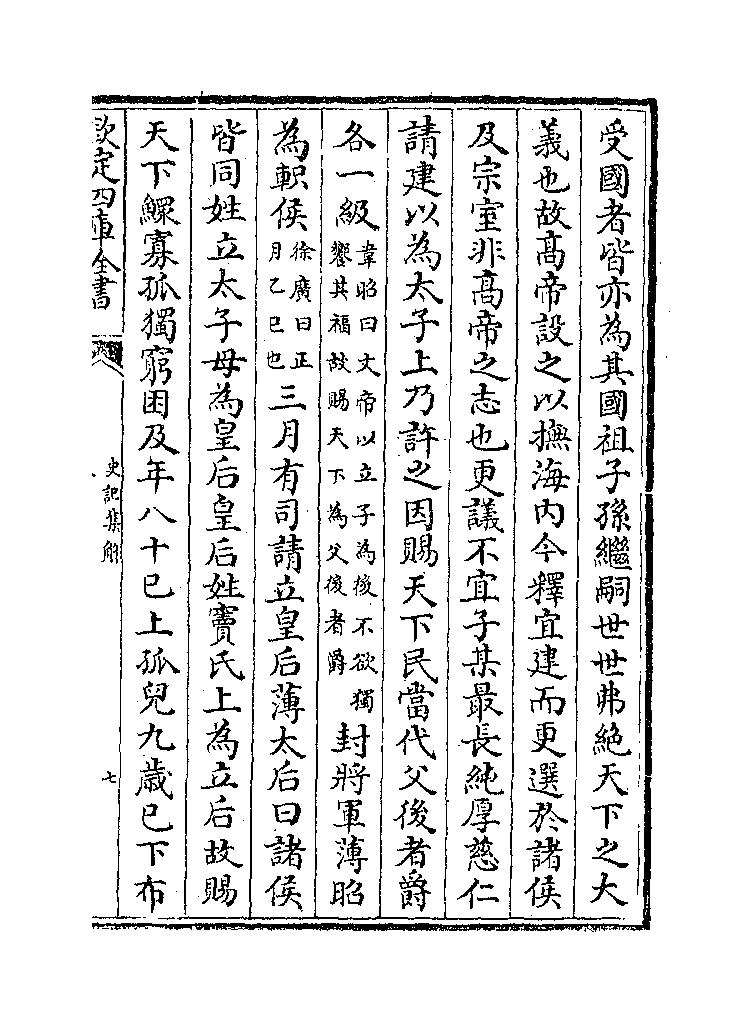 受國者皆亦為其國祖子孫繼嗣世世弗絶天下之大
義也故髙帝設之以撫海内今釋宜建而更選於諸侯
及宗室非髙帝之志也更議不宜子某最長純厚慈仁
請建以為太子上乃許之因賜天下民當代父後者爵
各一級韋昭曰文帝以立子為後不欲獨饗其福故賜天下為父後者爵封將軍薄昭
為軹侯徐廣曰正月乙巳也三月有司請立皇后薄太后曰諸侯
皆同姓立太子母為皇后皇后姓竇氏上為立后故賜
天下鰥寡孤獨窮困及年八十已上孤兒九歳已下布
欽定四庫全書
史記集解
七